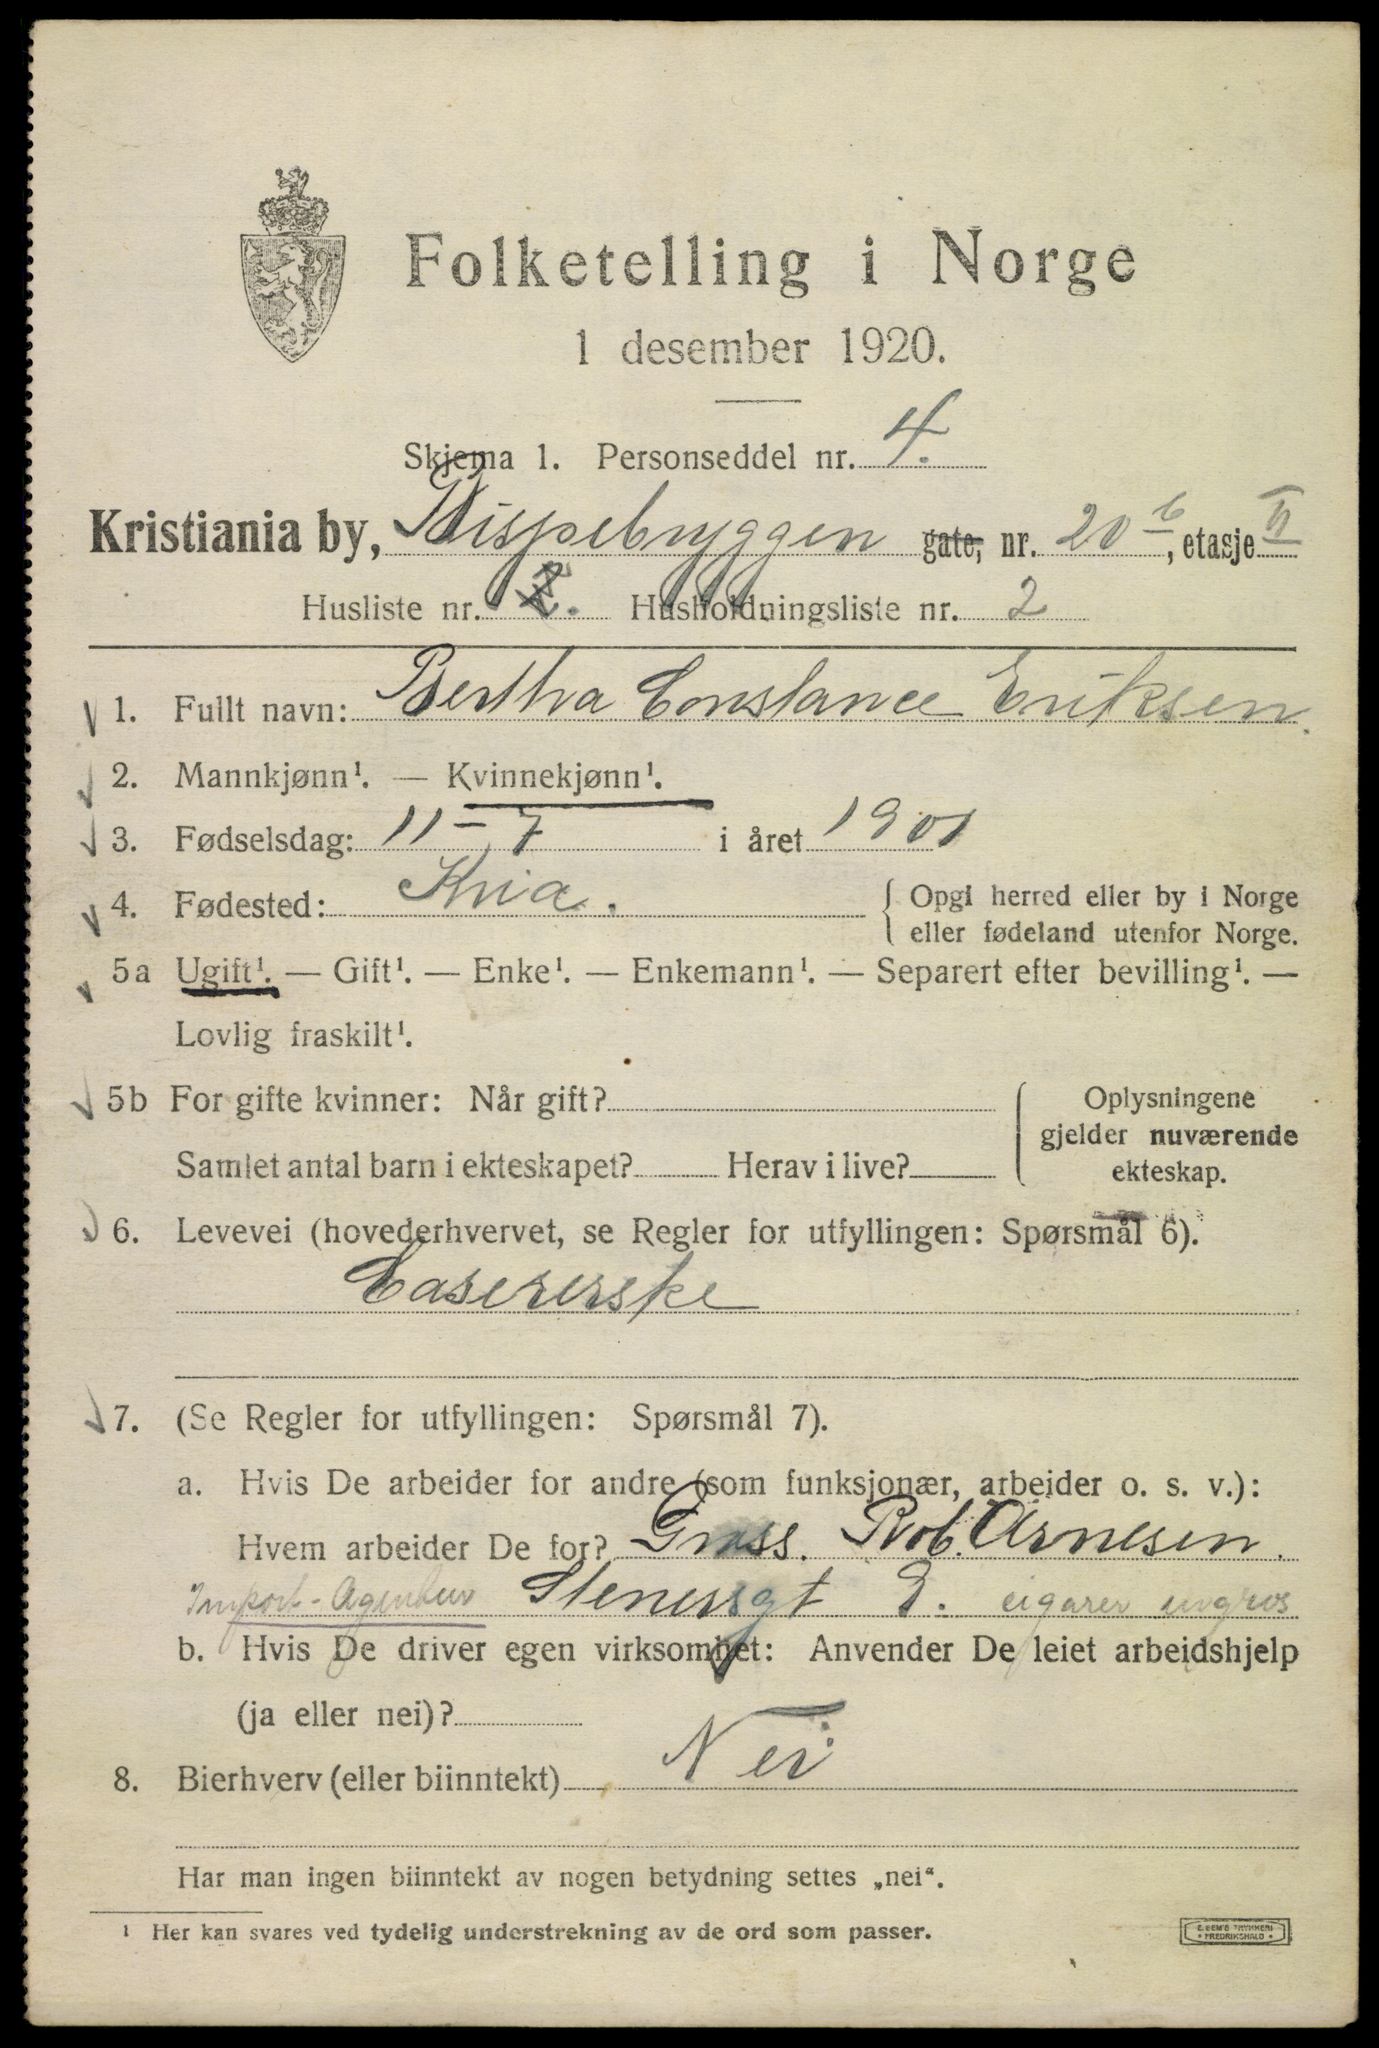 Folketelling i Norge
1 desember 1920.
Skjema 1. Personseddel nr. 4.
Kristiania by, Pispebryggen gate, nr. 20 b, etasje II
Husliste nr. 2. Husholdningsliste nr. 2
1. Fullt navn: Bertha Constance Eriksen.
2. Mannkjønn¹. — Kvinnekjønn¹.
3. Fødselsdag: 11 – 7 i året 1901
4. Fødested: Kria. { Opgi herred eller by i Norge
eller fødeland utenfor Norge.
5a Ugift¹. — Gift¹. — Enke¹. — Enkemann¹. — Separert efter bevilling¹. —
Lovlig fraskilt¹.
5b For gifte kvinner: Når gift?
Samlet antal barn i ekteskapet? Herav i live?
Oplysningene
gjelder nuværende
ekteskap.
6. Levevei (hovederhvervet, se Regler for utfyllingen: Spørsmål 6).
Casererske
7. (Se Regler for utfyllingen: Spørsmål 7).
a. Hvis De arbeider for andre (som funksjonær, arbeider o. s. v.):
Hvem arbeider De for? Gross. Rob. Arnesen.
Import-Agentur Stenersgt 8. cigarer engros
b. Hvis De driver egen virksomhet: Anvender De leiet arbeidshjelp
(ja eller nei)?
8. Bierhverv (eller biinntekt) Nei
Har man ingen biinntekt av nogen betydning settes „nei“.
¹ Her kan svares ved tydelig understrekning av de ord som passer.
E. SEM'S TRYKKERI
FREDRIKSHALD